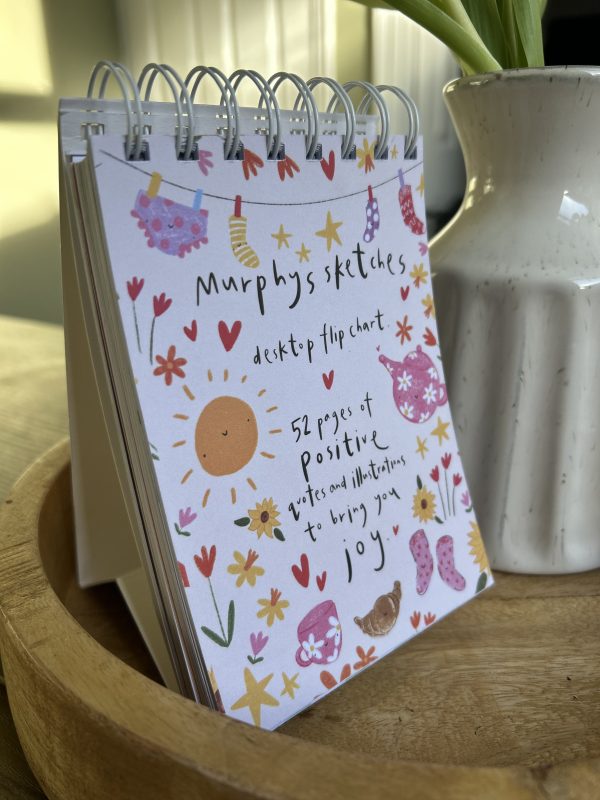 Murphys sketches
desktop flip chart.
52 pages of
positive
quotes and illustrations
to bring you
joy.